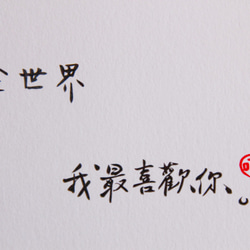 全世界
我最喜歡你。